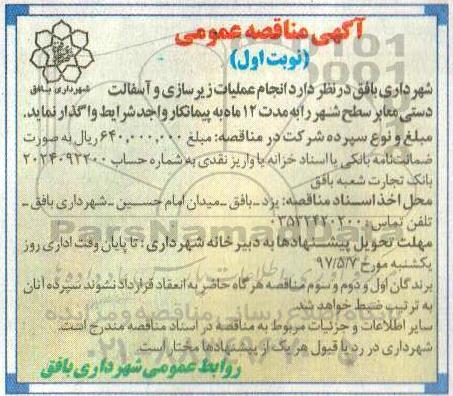 آگهی مناقصه عمومی
(نوبت اول)
شهرداری بافق
شهرداری بافق در نظر دارد انجام عملیات زیرسازی و آسفالت
دستی معابر سطح شهر را به مدت ۱۲ ماه به پیمانکار واجد شرایط واگذار نماید.
مبلغ و نوع سپرده شرکت در مناقصه: مبلغ ۶۴۰,۰۰۰,۰۰۰ ریال به صورت
ضمانت‌نامه بانکی یا اسناد خزانه یا واریز نقدی به شماره حساب ۲۰۲۴۰۹۲۲۰۰
بانک تجارت شعبه بافق
محل اخذ اسناد مناقصه: یزد ـ بافق ـ میدان امام حسین ـ شهرداری بافق ـ
تلفن تماس: ۰۳۵۳۲۴۲۰۲۰۰
مهلت تحویل پیشنهادها به دبیرخانه شهرداری: تا پایان وقت اداری روز
یکشنبه مورخ ۹۷/۵/۷
برندگان اول و دوم و سوم مناقصه هرگاه حاضر به انعقاد قرارداد نشوند سپرده آنان
به ترتیب ضبط خواهد شد.
سایر اطلاعات و جزئیات مربوط به مناقصه در اسناد مناقصه مندرج است.
شهرداری در رد یا قبول هر یک از پیشنهادها مختار است.
روابط عمومی شهرداری بافق
ParsNamadData